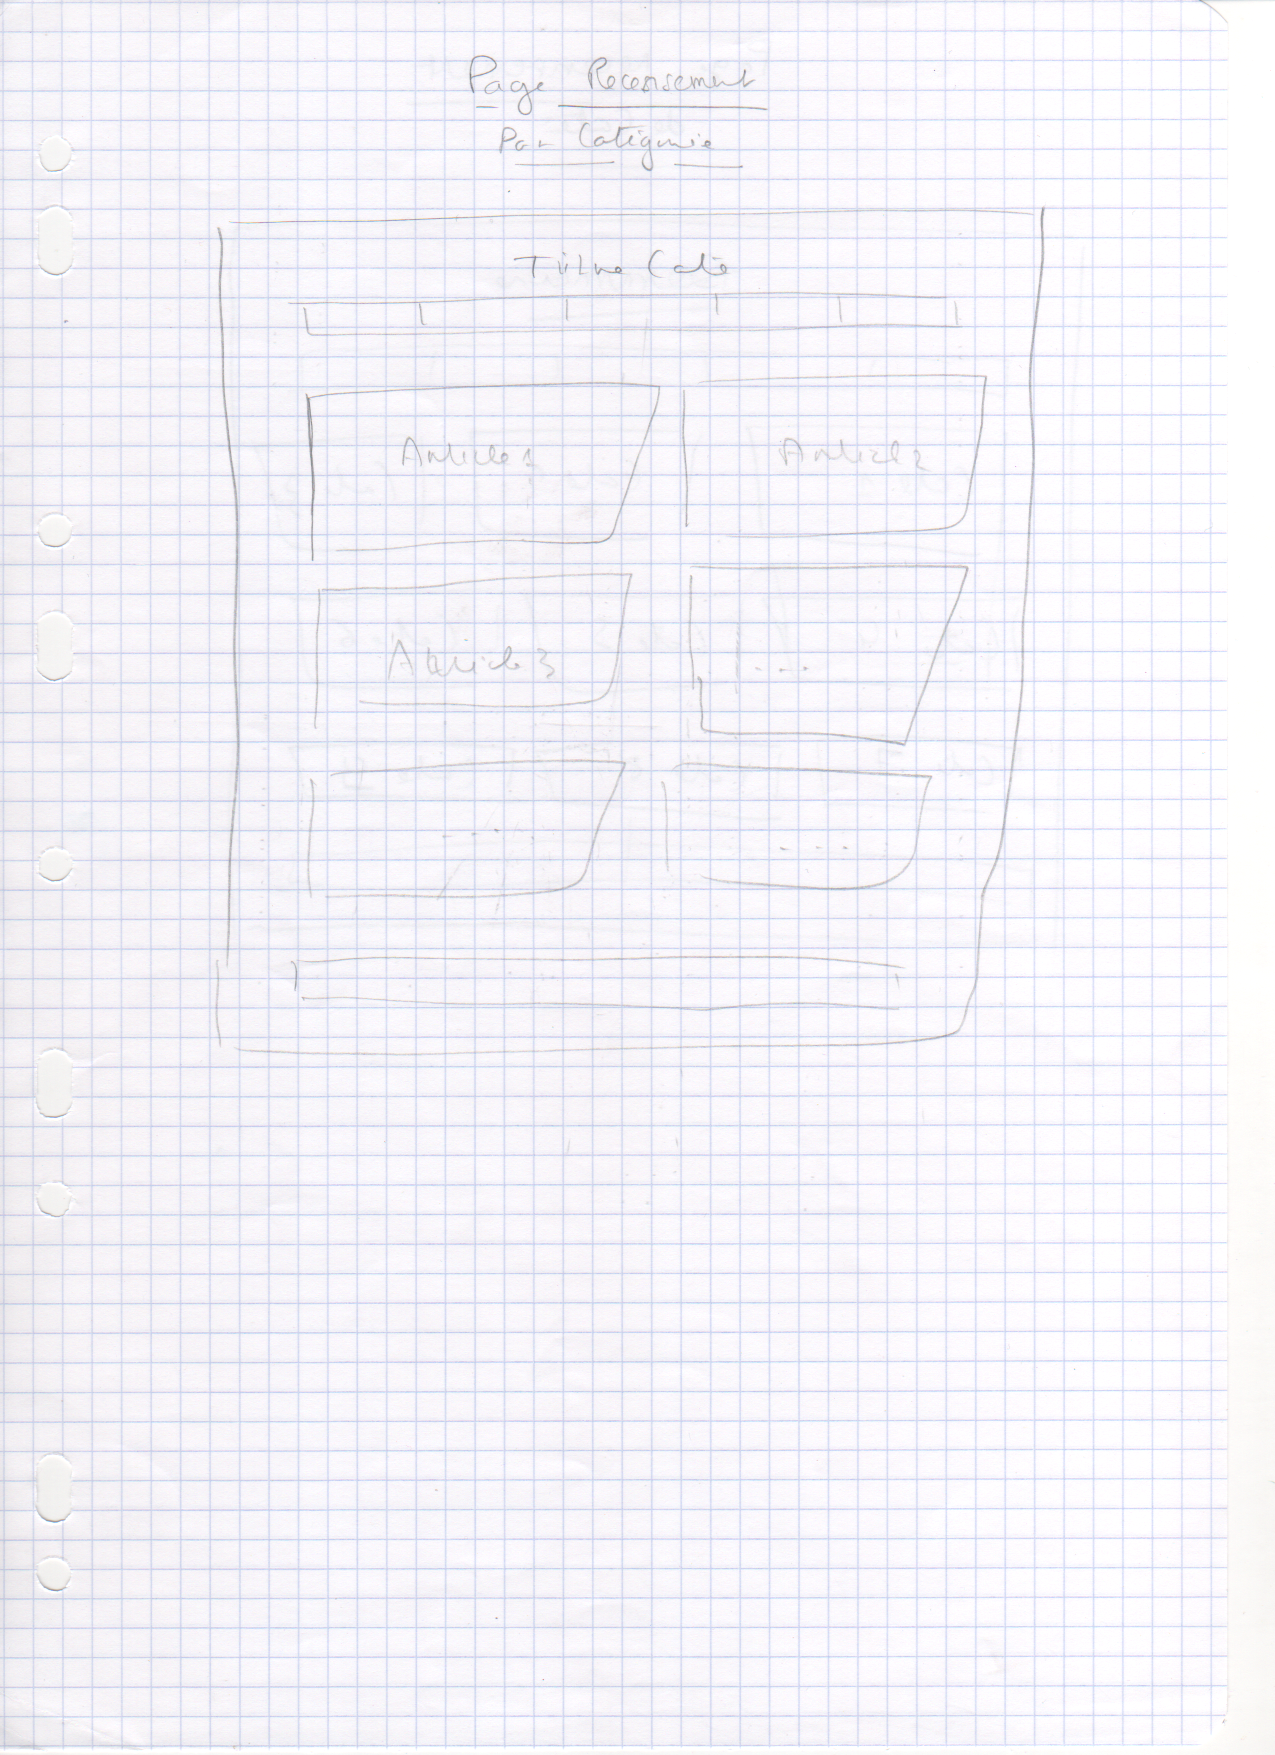 Page Recensement
Par Catégorie
Titre Caté
Article 1
Article 2
Article 3
...
....
....